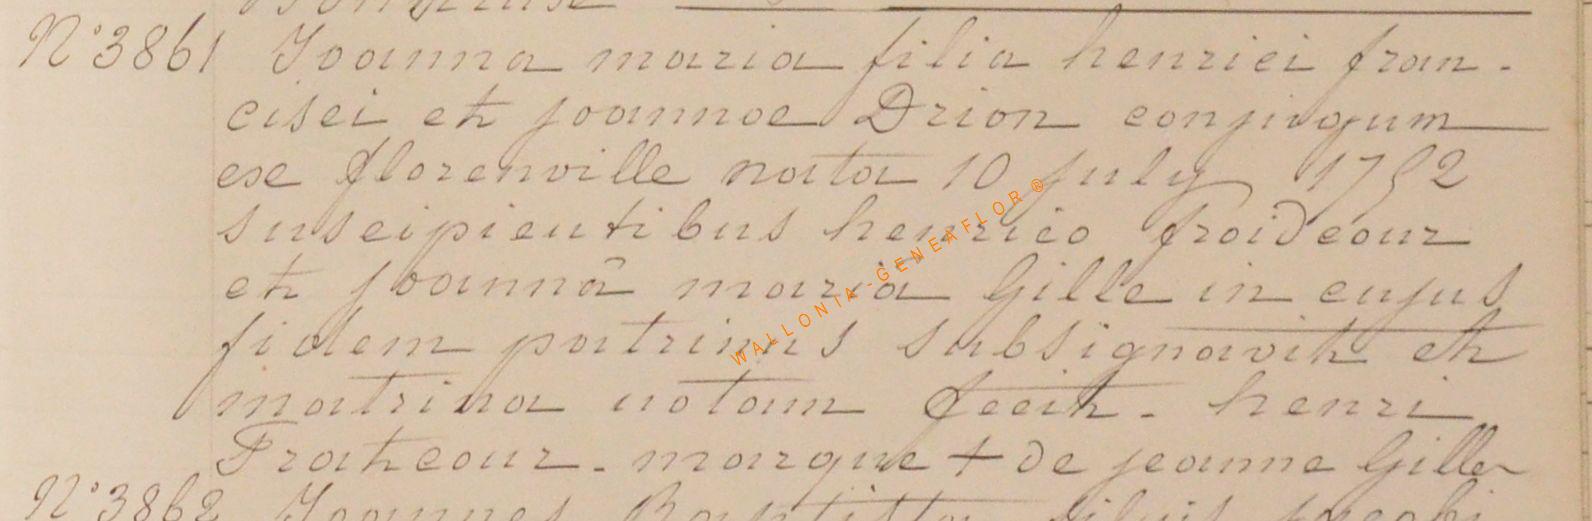 N° 3861 Joanna maria filia henrici fran-
cisci et joannae Drion conjugum
ese florenville nata 10 july 1752
suscipientibus henrico froidcour
et joannâ maria Gille in cujus
fidem patrinus subsignavit et
matrina notam fecit - henri
Fratcour - marque + de jeanne Gille
N° 3862 Joannes Baptista filius jacobi
WALLONIA-GENEAFLOR ®